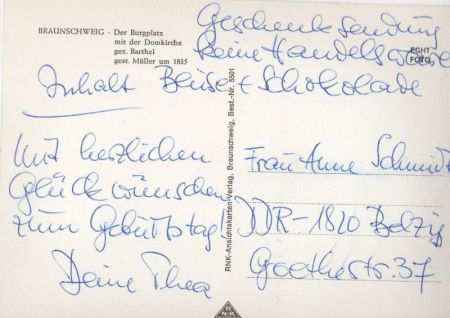 Geschenksendung
keine Handelsware
BRAUNSCHWEIG - Der Burgplatz
mit der Domkirche
gez. Barthel
gest. Müller um 1835
ECHT
FOTO
Inhalt Bluse + Schokolade
Mit herzlichen
Glückwünschen
zum Geburtstag!
Deine Thea
RNK-Ansichtskarten-Verlag, Braunschweig, Best.-Nr. 5501
Frau Anne Schmidt
DDR-1820 Belzig
Goethestr. 37
RNK